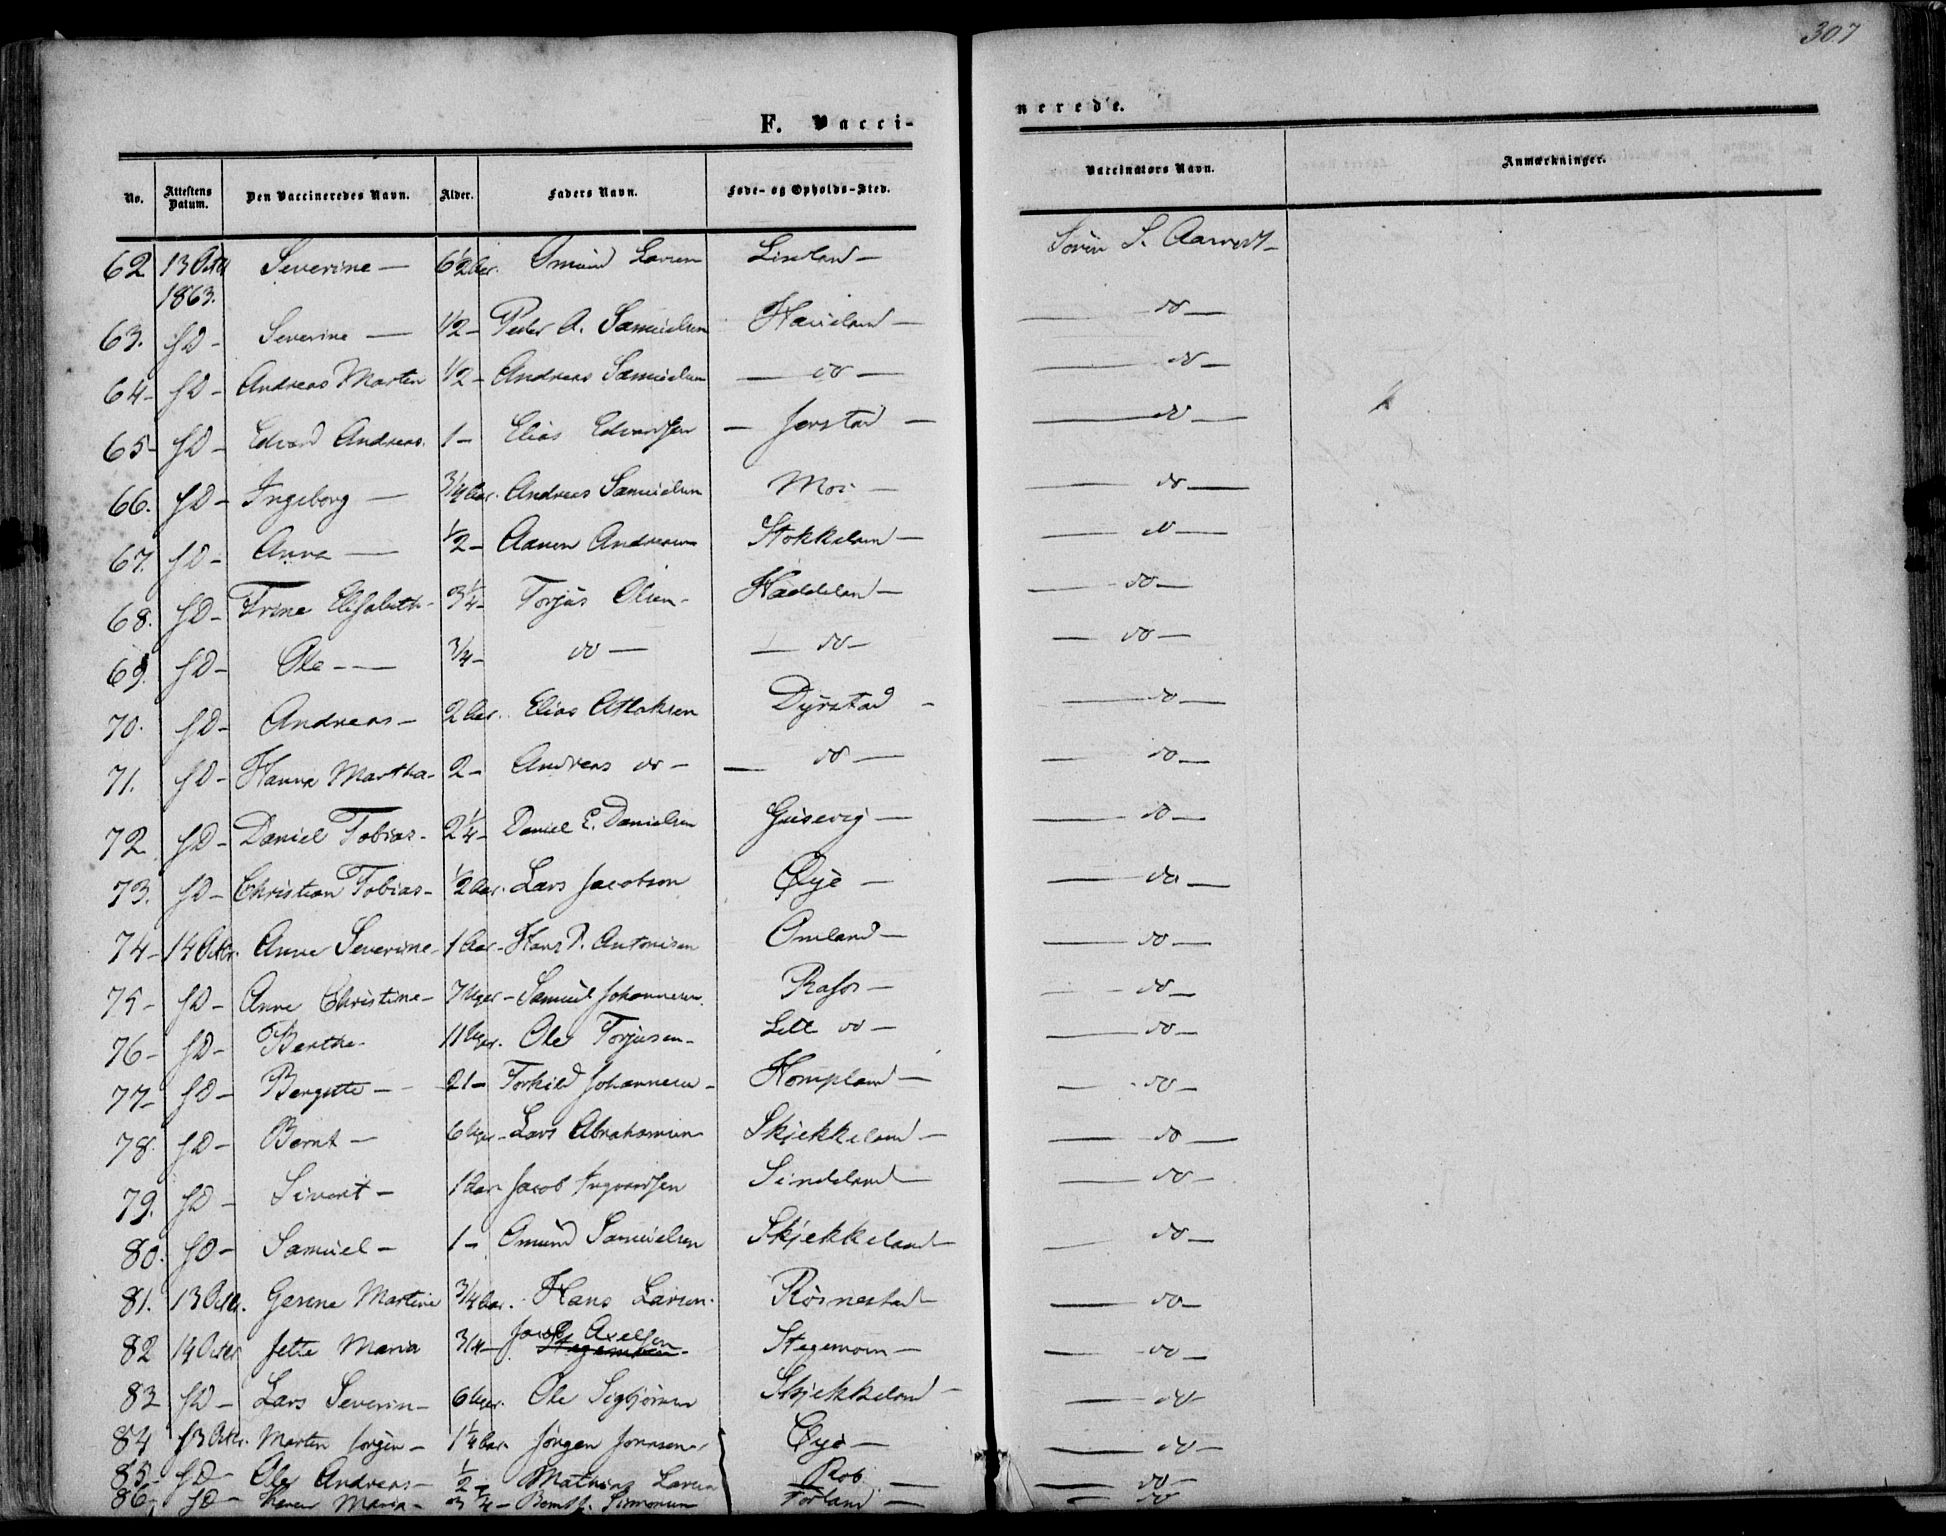 307
F. Vacci-
nerede.
No. Attestens Datum. Den Vaccineredes Navn. Alder. Faders Navn. Føde- og Opholds-Sted. Vaccinatørs Navn. Anmærkninger.
62 13 Octbr Severine — 6½ Aar. Omund Larsen — Søren S.
1863.
63. sD - Severine — 1/2 - Peder A. Samuelsen Haueland — do —
64 - sD - Andreas Martin 1/2 - Andreas Samuelsen — do — — do —
65 - sD - Edvard Andreas. 1 - Elias Edvardsen — Jerstad — — do —
66. sD - Ingeborg — 3/4 Aar. Andreas Samuelsen Moi — — do —
67. sD - Anna — 1/2 - Aanen Andreasen Stokkeland — — do —
68. sD - Trine Elisabeth - Torjus Olsen - Haddeland — — do —
69. sD - Ole — 3/4 - do — — do — — do —
70. sD - Andreas - 2 Aar. Elias Atlaksen Dyrstad - — do —
71. sD - Hanna Martha - 2 - Andreas do - — do — — do —
72 sD - Daniel Tobias - 2¼ - Daniel E. Danielsen Gusevig — — do —
73. sD - Christian Tobias - 1/2 Aar. Lars Jacobson Øye — — do —
74 - 14 Octbr. Anne Severine - 1 Aar - Hans P. Antonisen Omland — — do —
75 - sD - Anne Christine - 7 Uger - Samuel Johannesen. Rafos — — do —
76 - sD - Berthe - 11 Uger. Ole Torjusen - Lill do — — do —
77 - sD - Bergitte - 21 - Torkild Johannesen - Hompland — — do —
78. sD - Bernt — 6 Uger - Lars Abrahamsen Skjekkeland — — do —
79. sD - Sivert - 1 Aar - Jacob Ingvardsen Sindeland — — do —
80. sD - Samuel - 1 - Omund Samuelsen Skjekkeland — — do —
81. 13 Octbr. Gesine Martine 3/4 Aar. Hans Larsen. Røsnestad — — do —
82 14 Octbr Jette Maria 3/4 - Jacob Axelsen Stegemoen — — do —
83 sD - Lars Severin - 6 Uger. Ole Sigbjørnsen Skjekkeland — — do —
84 13 Octbr. Martin Jørgen - 1¼ Aar. Jørgen Jonasen - Øye — — do —
85 - sD - Ole Andreas - 1/2 - Mathias Larsen — do —
86 - sD - Maria - Simonsen — do —